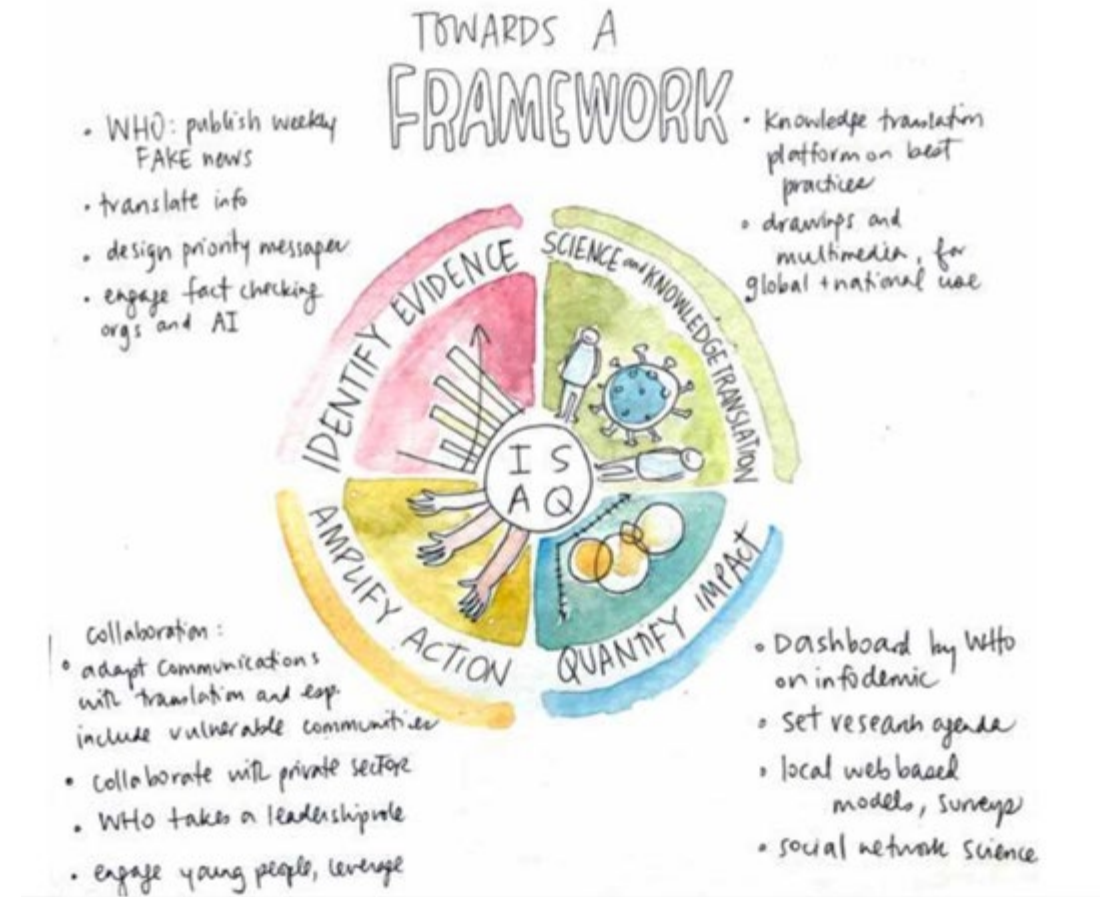 TOWARDS A
FRAMEWORK
• WHO: publish weekly
FAKE news
• translate info
• design priority messages
• engage fact checking
orgs and AI
• Knowledge translation
platform on best
practices
• drawings and
multimedia, for
global + national use
IDENTIFY EVIDENCE
SCIENCE and KNOWLEDGE TRANSLATION
I S
A Q
AMPLIFY ACTION
QUANTIFY IMPACT
Collaboration:
• adapt communications
with translation and esp.
include vulnerable communities
• collaborate with private sector
• WHO takes a leadership role
• engage young people, leverage
• Dashboard by WHO
on infodemic
• set research agenda
• local web based
models, surveys
• social network science